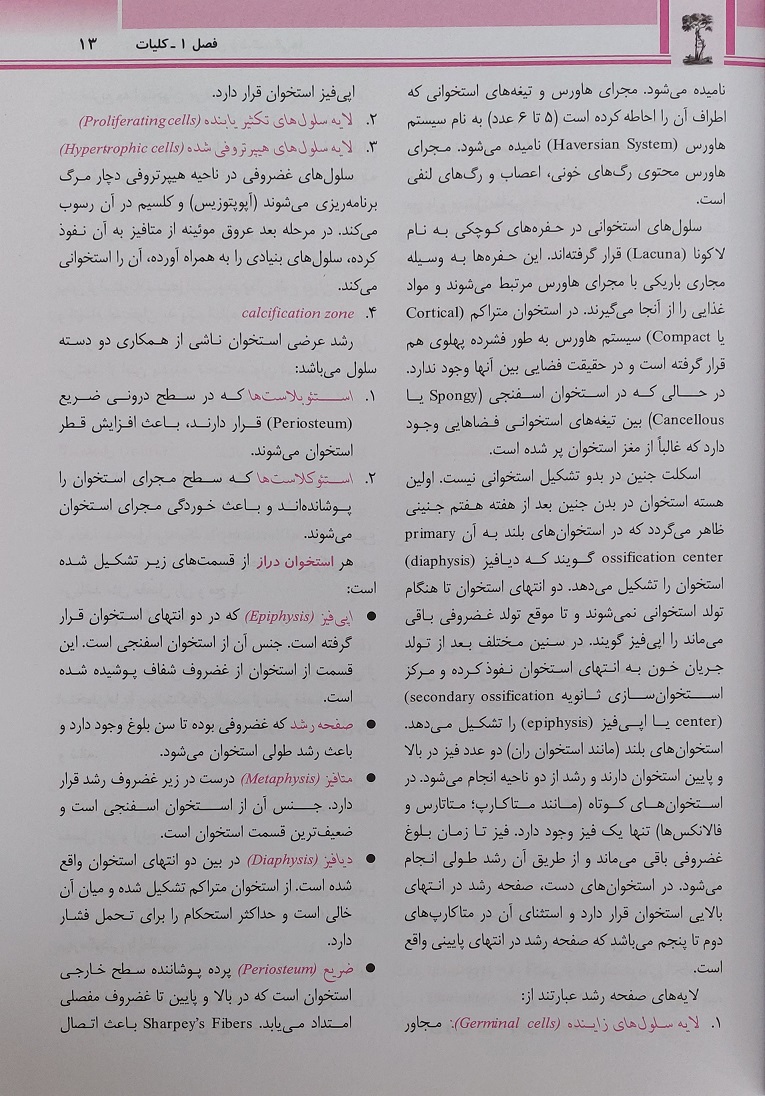 فصل ۱ ـ کلیات ۱۳
نامیده می‌شود. مجرای هاورس و تیغه‌های استخوانی که
اطراف آن را احاطه کرده است (۵ تا ۶ عدد) به نام سیستم
هاورس (Haversian System) نامیده می‌شود. مجرای
هاورس محتوی رگ‌های خونی، اعصاب و رگ‌های لنفی
است.
سلول‌های استخوانی در حفره‌های کوچکی به نام
لاکونا (Lacuna) قرار گرفته‌اند. این حفره‌ها به وسیله
مجاری باریکی با مجرای هاورس مرتبط می‌شوند و مواد
غذایی را از آنجا می‌گیرند. در استخوان متراکم (Cortical
یا Compact) سیستم هاورس به طور فشرده پهلوی هم
قرار گرفته است و در حقیقت فضایی بین آنها وجود ندارد.
در حالی که در استخوان اسفنجی (Spongy یا
Cancellous) بین تیغه‌های استخوانی فضاهایی وجود
دارد که غالباً از مغز استخوان پر شده است.
اسکلت جنین در بدو تشکیل استخوانی نیست. اولین
هسته استخوان در بدن جنین بعد از هفته هفتم جنینی
ظاهر می‌گردد که در استخوان‌های بلند به آن primary
ossification center گویند که دیافیز (diaphysis)
استخوان را تشکیل می‌دهد. دو انتهای استخوان تا هنگام
تولد استخوانی نمی‌شوند و تا موقع تولد غضروفی باقی
می‌ماند را اپی‌فیز گویند. در سنین مختلف بعد از تولد
جریان خون به انتهای استخوان نفوذ کرده و مرکز
استخوان‌سازی ثانویه (secondary ossification
center) یا اپی‌فیز (epiphysis) را تشکیل می‌دهد.
استخوان‌های بلند (مانند استخوان ران) دو عدد فیز در بالا
و پایین استخوان دارند و رشد از دو ناحیه انجام می‌شود. در
استخوان‌های کوتاه (مانند متاکارپ؛ متاتارس و
فالانکس‌ها) تنها یک فیز وجود دارد. فیز تا زمان بلوغ
غضروفی باقی می‌ماند و از طریق آن رشد طولی انجام
می‌شود. در استخوان‌های دست، صفحه رشد در انتهای
بالایی استخوان قرار دارد و استثنای آن در متاکارپ‌های
دوم تا پنجم می‌باشد که صفحه رشد در انتهای پایینی واقع
است.
لایه‌های صفحه رشد عبارتند از:
۱. لایه سلول‌های زاینده (Germinal cells): مجاور
اپی‌فیز استخوان قرار دارد.
۲. لایه سلول‌های تکثیر یابنده (Proliferating cells)
۳. لایه سلول‌های هیپرتروفی شده (Hypertrophic cells)
سلول‌های غضروفی در ناحیه هیپرتروفی دچار مرگ
برنامه‌ریزی می‌شوند (آپوپتوزیس) و کلسیم در آن رسوب
می‌کند. در مرحله بعد عروق موئینه از متافیز به آن نفوذ
کرده، سلول‌های بنیادی را به همراه آورده، آن را استخوانی
می‌کند.
۴. calcification zone
رشد عرضی استخوان ناشی از همکاری دو دسته
سلول می‌باشد:
۱. استئوبلاست‌ها که در سطح درونی ضریع
(Periosteum) قرار دارند، باعث افزایش قطر
استخوان می‌شوند.
۲. استئوکلاست‌ها که سطح مجرای استخوان را
پوشانده‌اند و باعث خوردگی مجرای استخوان
می‌شوند.
هر استخوان دراز از قسمت‌های زیر تشکیل شده
است:
● اپی‌فیز (Epiphysis) که در دو انتهای استخوان قرار
گرفته است. جنس آن از استخوان اسفنجی است. این
قسمت از استخوان از غضروف شفاف پوشیده شده
است.
● صفحه رشد که غضروفی بوده تا سن بلوغ وجود دارد و
باعث رشد طولی استخوان می‌شود.
● متافیز (Metaphysis) درست در زیر غضروف رشد قرار
دارد. جنس آن از استخوان اسفنجی است و
ضعیف‌ترین قسمت استخوان است.
● دیافیز (Diaphysis) در بین دو انتهای استخوان واقع
شده است. از استخوان متراکم تشکیل شده و میان آن
خالی است و حداکثر استحکام را برای تحمل فشار
دارد.
● ضریع (Periosteum) پرده پوشاننده سطح خارجی
استخوان است که در بالا و پایین تا غضروف مفصلی
امتداد می‌یابد. Sharpey's Fibers باعث اتصال